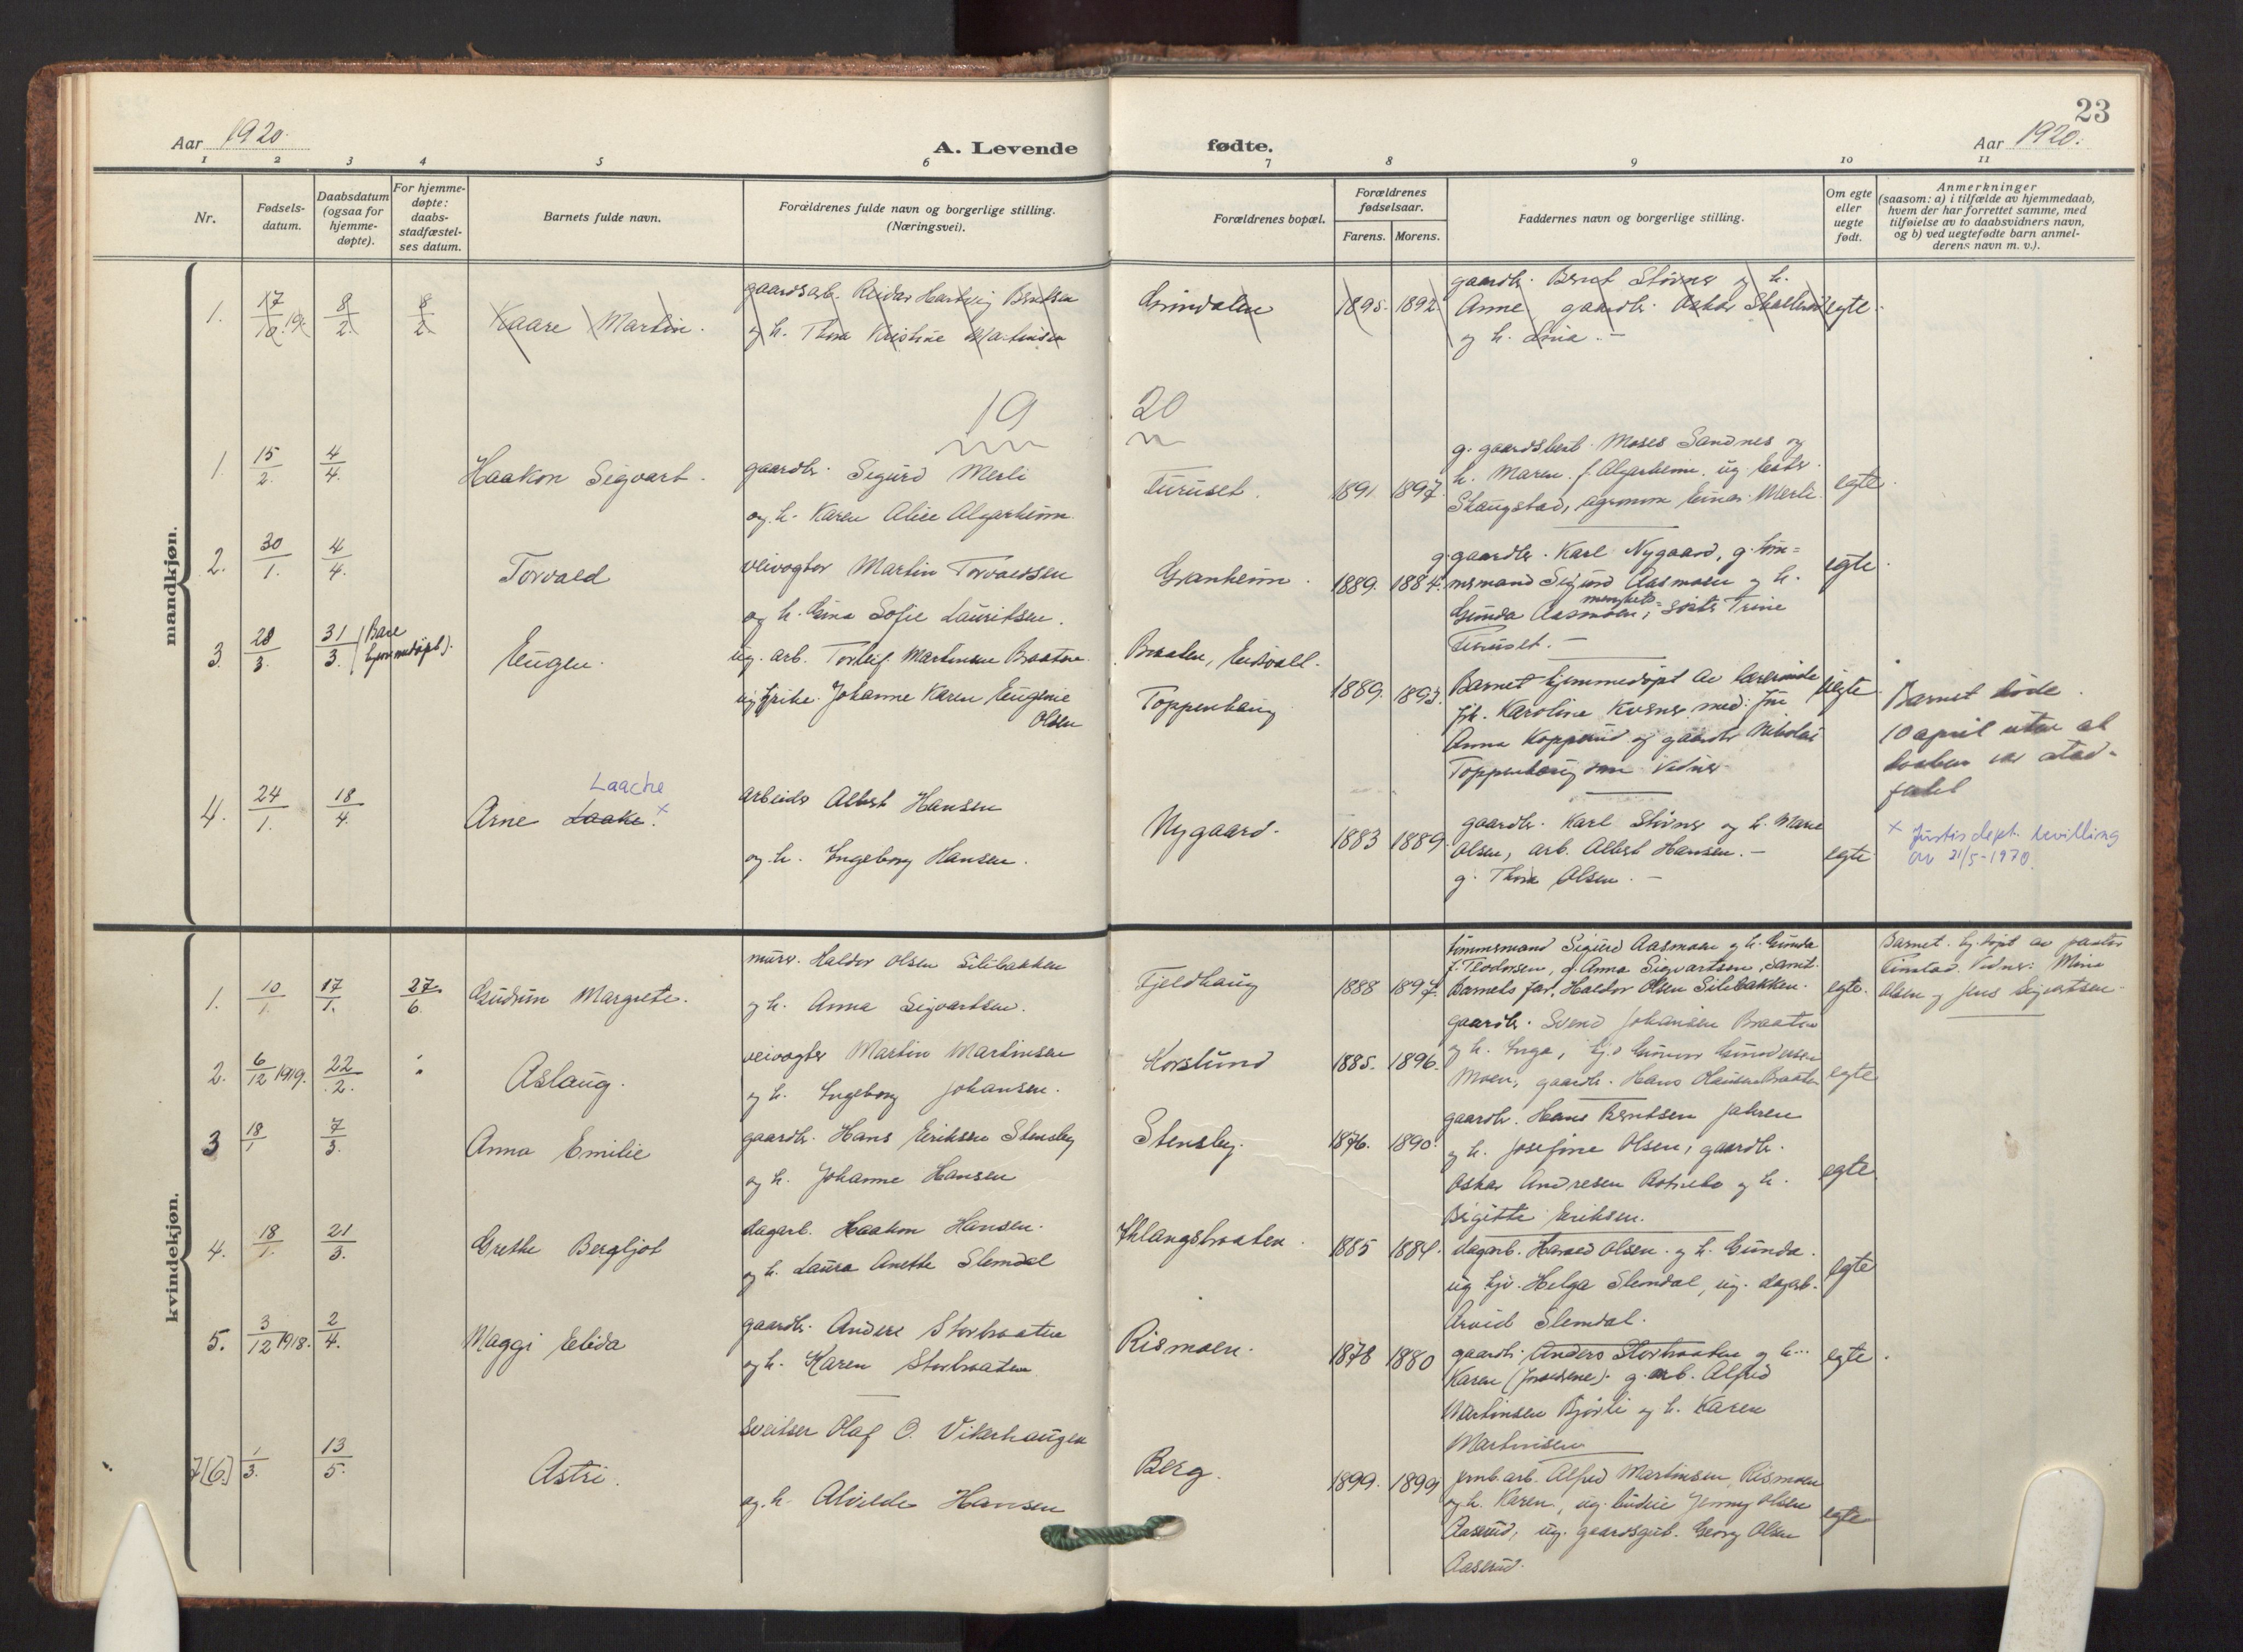 23
Aar 1920.
A. Levende fødte.
Aar 1920.
1 2 3 4 5 6 7 8 9 10 11
Nr.
Fødsels-
datum.
Daabsdatum
(ogsaa for
hjemme-
døpte).
For hjemme-
døpte:
daabs-
stadfæstel-
ses datum.
Barnets fulde navn.
Forældrenes fulde navn og borgerlige stilling.
(Næringsvei).
Forældrenes bopæl.
Forældrenes
fødselsaar.
Farens. Morens.
Faddernes navn og borgerlige stilling.
Om egte
eller
uegte
født.
Anmerkninger
(saasom: a) i tilfælde av hjemmedaab,
hvem der har forrettet samme, med
tilføielse av to daabsvidners navn,
og b) ved uegtefødte barn anmel-
derens navn m. v.).
mandkjøn.
1. 17/10 19. 8/2 8/2 Kaare Martin.
gaardsarb. Reidar Hartvig Berntsen
og h. Thora Kristine Martinsen
Grindalen 1895. 1892
gaardbr. Bernt Støvner og h.
Anne, gaardbr. Oskar
og h. Lina. –
egte.
19 20
1. 15/2. 4/4. Haakon Sigvart.
gaardbr. Sigurd Merli
og h. Karen Alice Algarheim
Furuset. 1891. 1897.
g. gaardsbest. Moses Sandnes og
h. Maren f. Algarheim, ug. Ester
Skaugstad, agronom Einar Merli.
egte.
2. 30/1. 4/4. Torvald
veivogter Martin Torvaldsen
og h. Gina Sofie Lauritsen.
Granheim. 1889. 1884.
g. gaardbr. Karl Nygaard, g. tøm=
mermand Sigurd Aasmoen og h.
Gunda Aasmoen, menighets= søster Trine
Furuset. –
egte.
3. 28/3. 31/3. (Bare
hjemmedøpt).
Eugen.
ug. arb. Torleif Martinsen Braaten.
ug. pike. Johanne Karen Eugenie
Olsen
Braaten, Eidsvoll.
Toppenhaug
1889. 1893.
Barnet hjemmedøpt av lærerinde
frk. Karoline Kvernes med fru
Anna Kopperud og gaardbr Nikolai
Toppenhaug som vidner
uegte.
Barnet døde
10 april uten at
daaben var stad-
festet
4. 24/1. 18/4. Arne Laake. Laache x
arbeider Albert Hansen
og h. Ingeborg Hansen.
Nygaard. 1883 1889
gaardbr. Karl Støvner og h. Marie
Olsen, arb. Albert Hansen. –
g. Thora Olsen. –
egte
x Justisdept. bevilling
av 21/5-1970.
kvindekjøn.
1. 10/1. 17/1. 27/6. Gudrun Margrete.
murer. Haldor Olsen Silibakken
og h. Anna Sigvartsen.
Fjeldhaug 1888 1897.
tømmermand Sigurd Aasmoen og h. Gunda
f. Teodorsen, g. Anna Sigvartsen, samt
Barnets far, Haldor Olsen Silibakken.
egte.
Barnet hj. døpt av pastor
Finstad. Vidner: Mina
Olsen og Jens Sigvartsen.
2. 6/12 1919. 22/2. Aslaug.
veivogter Martin Martinsen
og h. Ingeborg Johansen.
Korslund 1885. 1896.
gaardbr. Svend Johansen Braaten
og h. Inga, Gundersen
Moen, gaardbr. Hans Olausen Braaten
egte
3 18/1 7/3. Anna Emilie
gaardbr. Hans Eriksen Stensby
og h. Johanne Hansen
Stensby. 1876. 1890.
gaardbr. Hans Berntsen Jahren
og h. Josefine Olsen, gaardbr.
Oskar Andresen og h.
Birgitte Eriksen.
egte
4. 18/1. 21/3. Grethe Bergljot
dagarb. Haakon Hansen.
og h. Laura Anette Slemdal
1885 1884.
dagarb. Harald Olsen. og h. Gunda.
ug. hjv. Helga Slemdal, ug. dagarb.
Arvid Slemdal.
egte
5. 3/12 1918. 2/4. Maggi Elida
gaardbr. Anders Storbraaten
og h. Karen Storbraaten
Rismoen. 1878 1880
gaardbr. Anders Storbraaten og h.
Karen g. arb. Alfred
Martinsen Bjørli og h. Karen
Martinsen
egte.
7 [6.] 1/3. 13/5. Astri.
sveitser Olaf O. Vikerhaugen
og h. Alvilde Hansen
Berg. 1899. 1899
jernb.arb. Alfred Martinsen, Rismoen
og h. Karen, ug. budeie Jenny Olsen
Aaserud, ug. gaardsgut. Georg Olsen
Aaserud.
egte